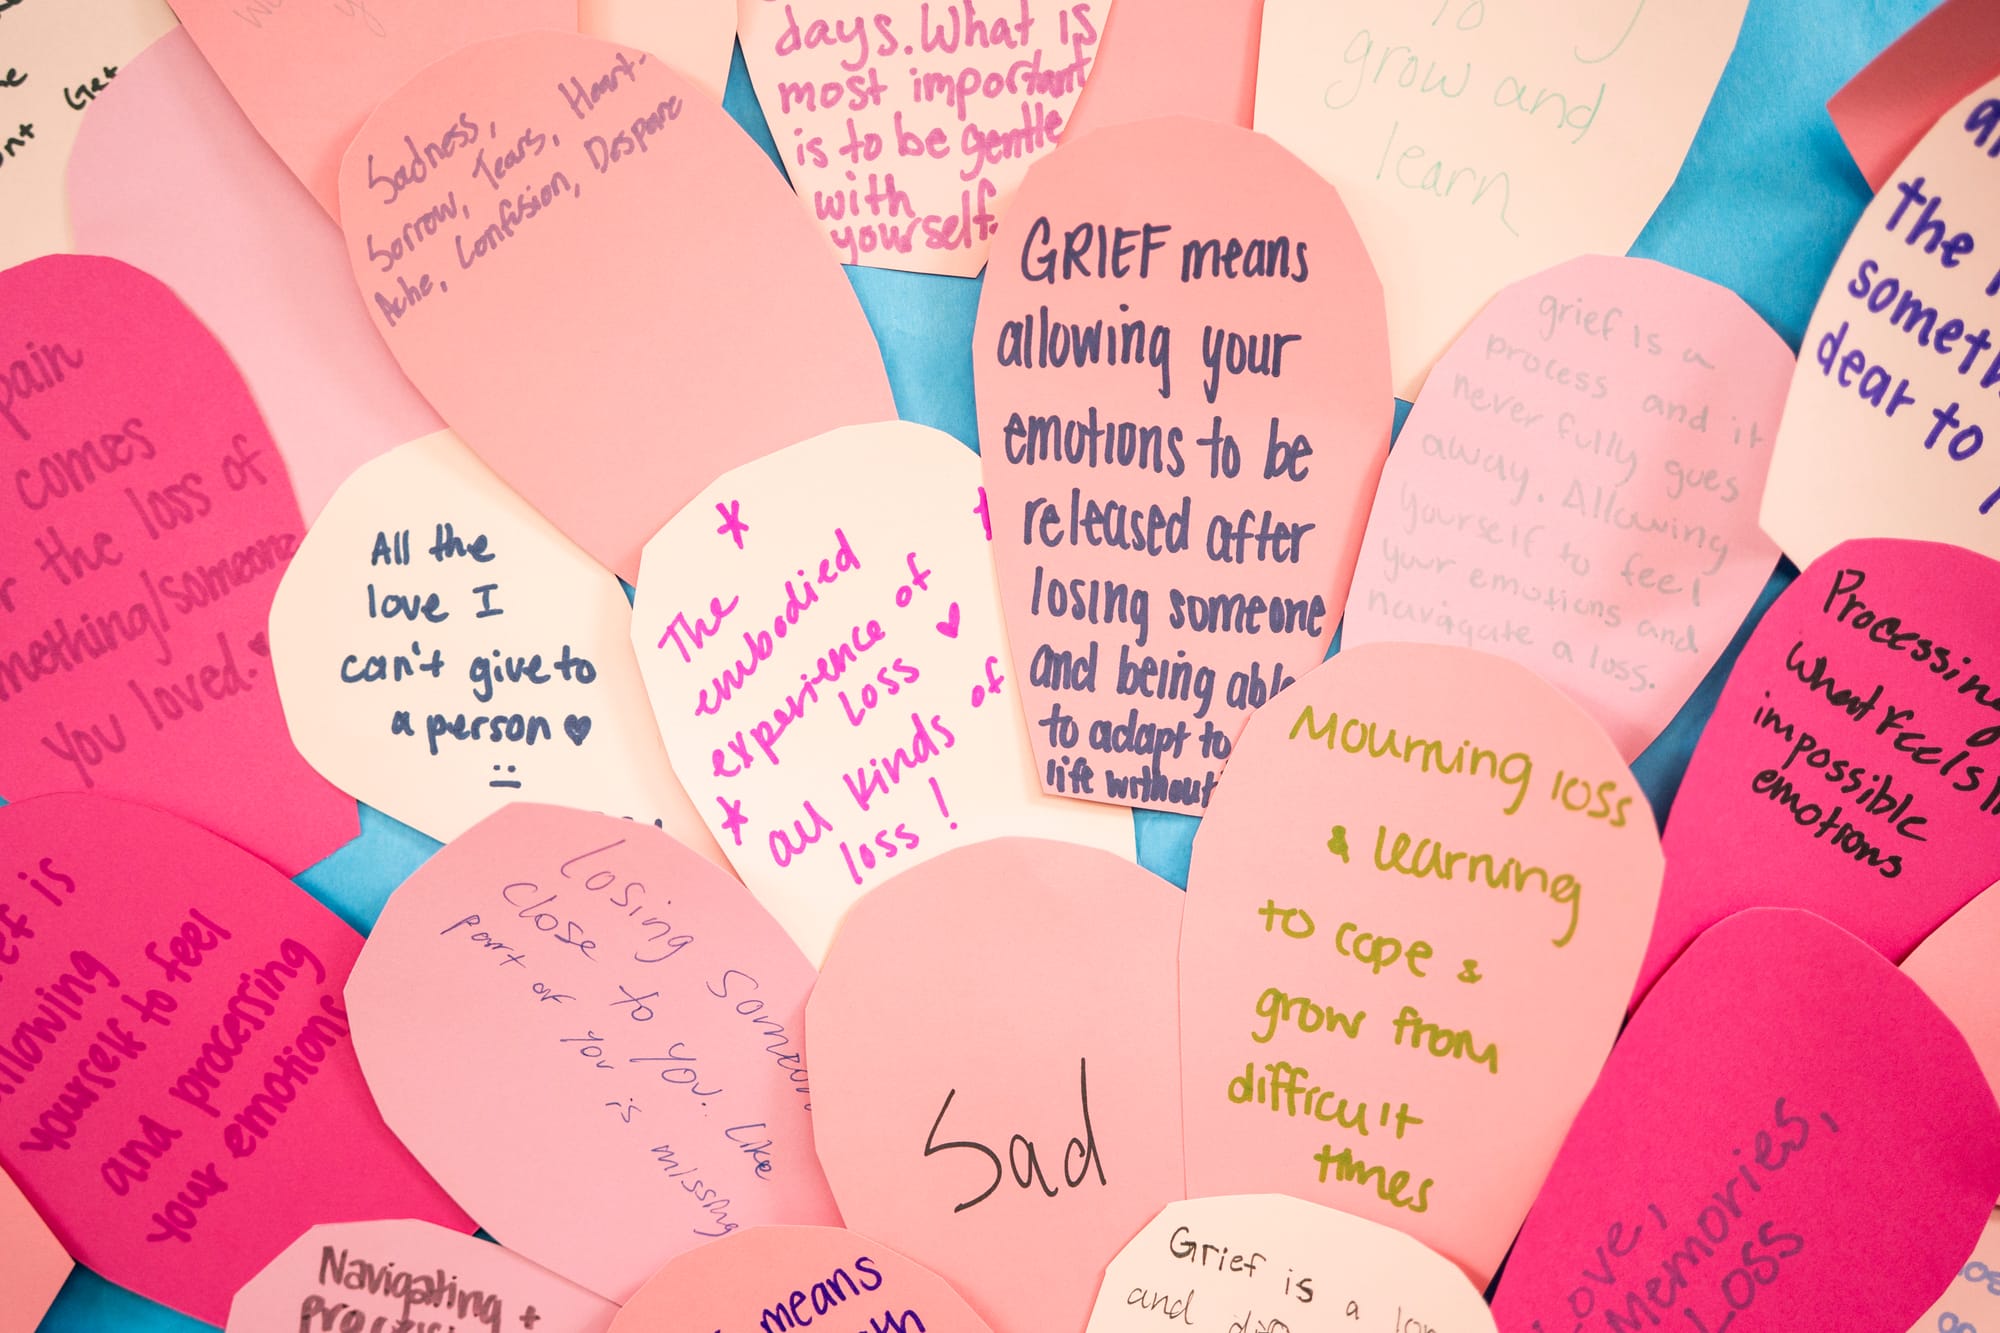 Get
days. What is
most important
is to be gentle
with
yourself.
grow and
learn
Sadness,
Sorrow, Tears, Heart-
Ache, Confusion, Despare
GRIEF means
allowing your
emotions to be
released after
losing someone
and being able
to adapt to
life without
grief is a
process and it
never fully goes
away. Allowing
yourself to feel
your emotions and
navigate a loss.
the
dear to
pain
comes
the loss of
you loved.
All the
love I
can't give to
a person ♥
*
The
embodied
experience of
loss ♥
* all kinds of
loss!
Processing
what feels
impossible
emotions
Mourning loss
& learning
to cope &
grow from
difficult
times
is
yourself to feel
and processing
your emotions
Losing
close to you. Like
part of you is missing
Sad
Love,
Memories,
Loss
Navigating +
means
Grief is a
and